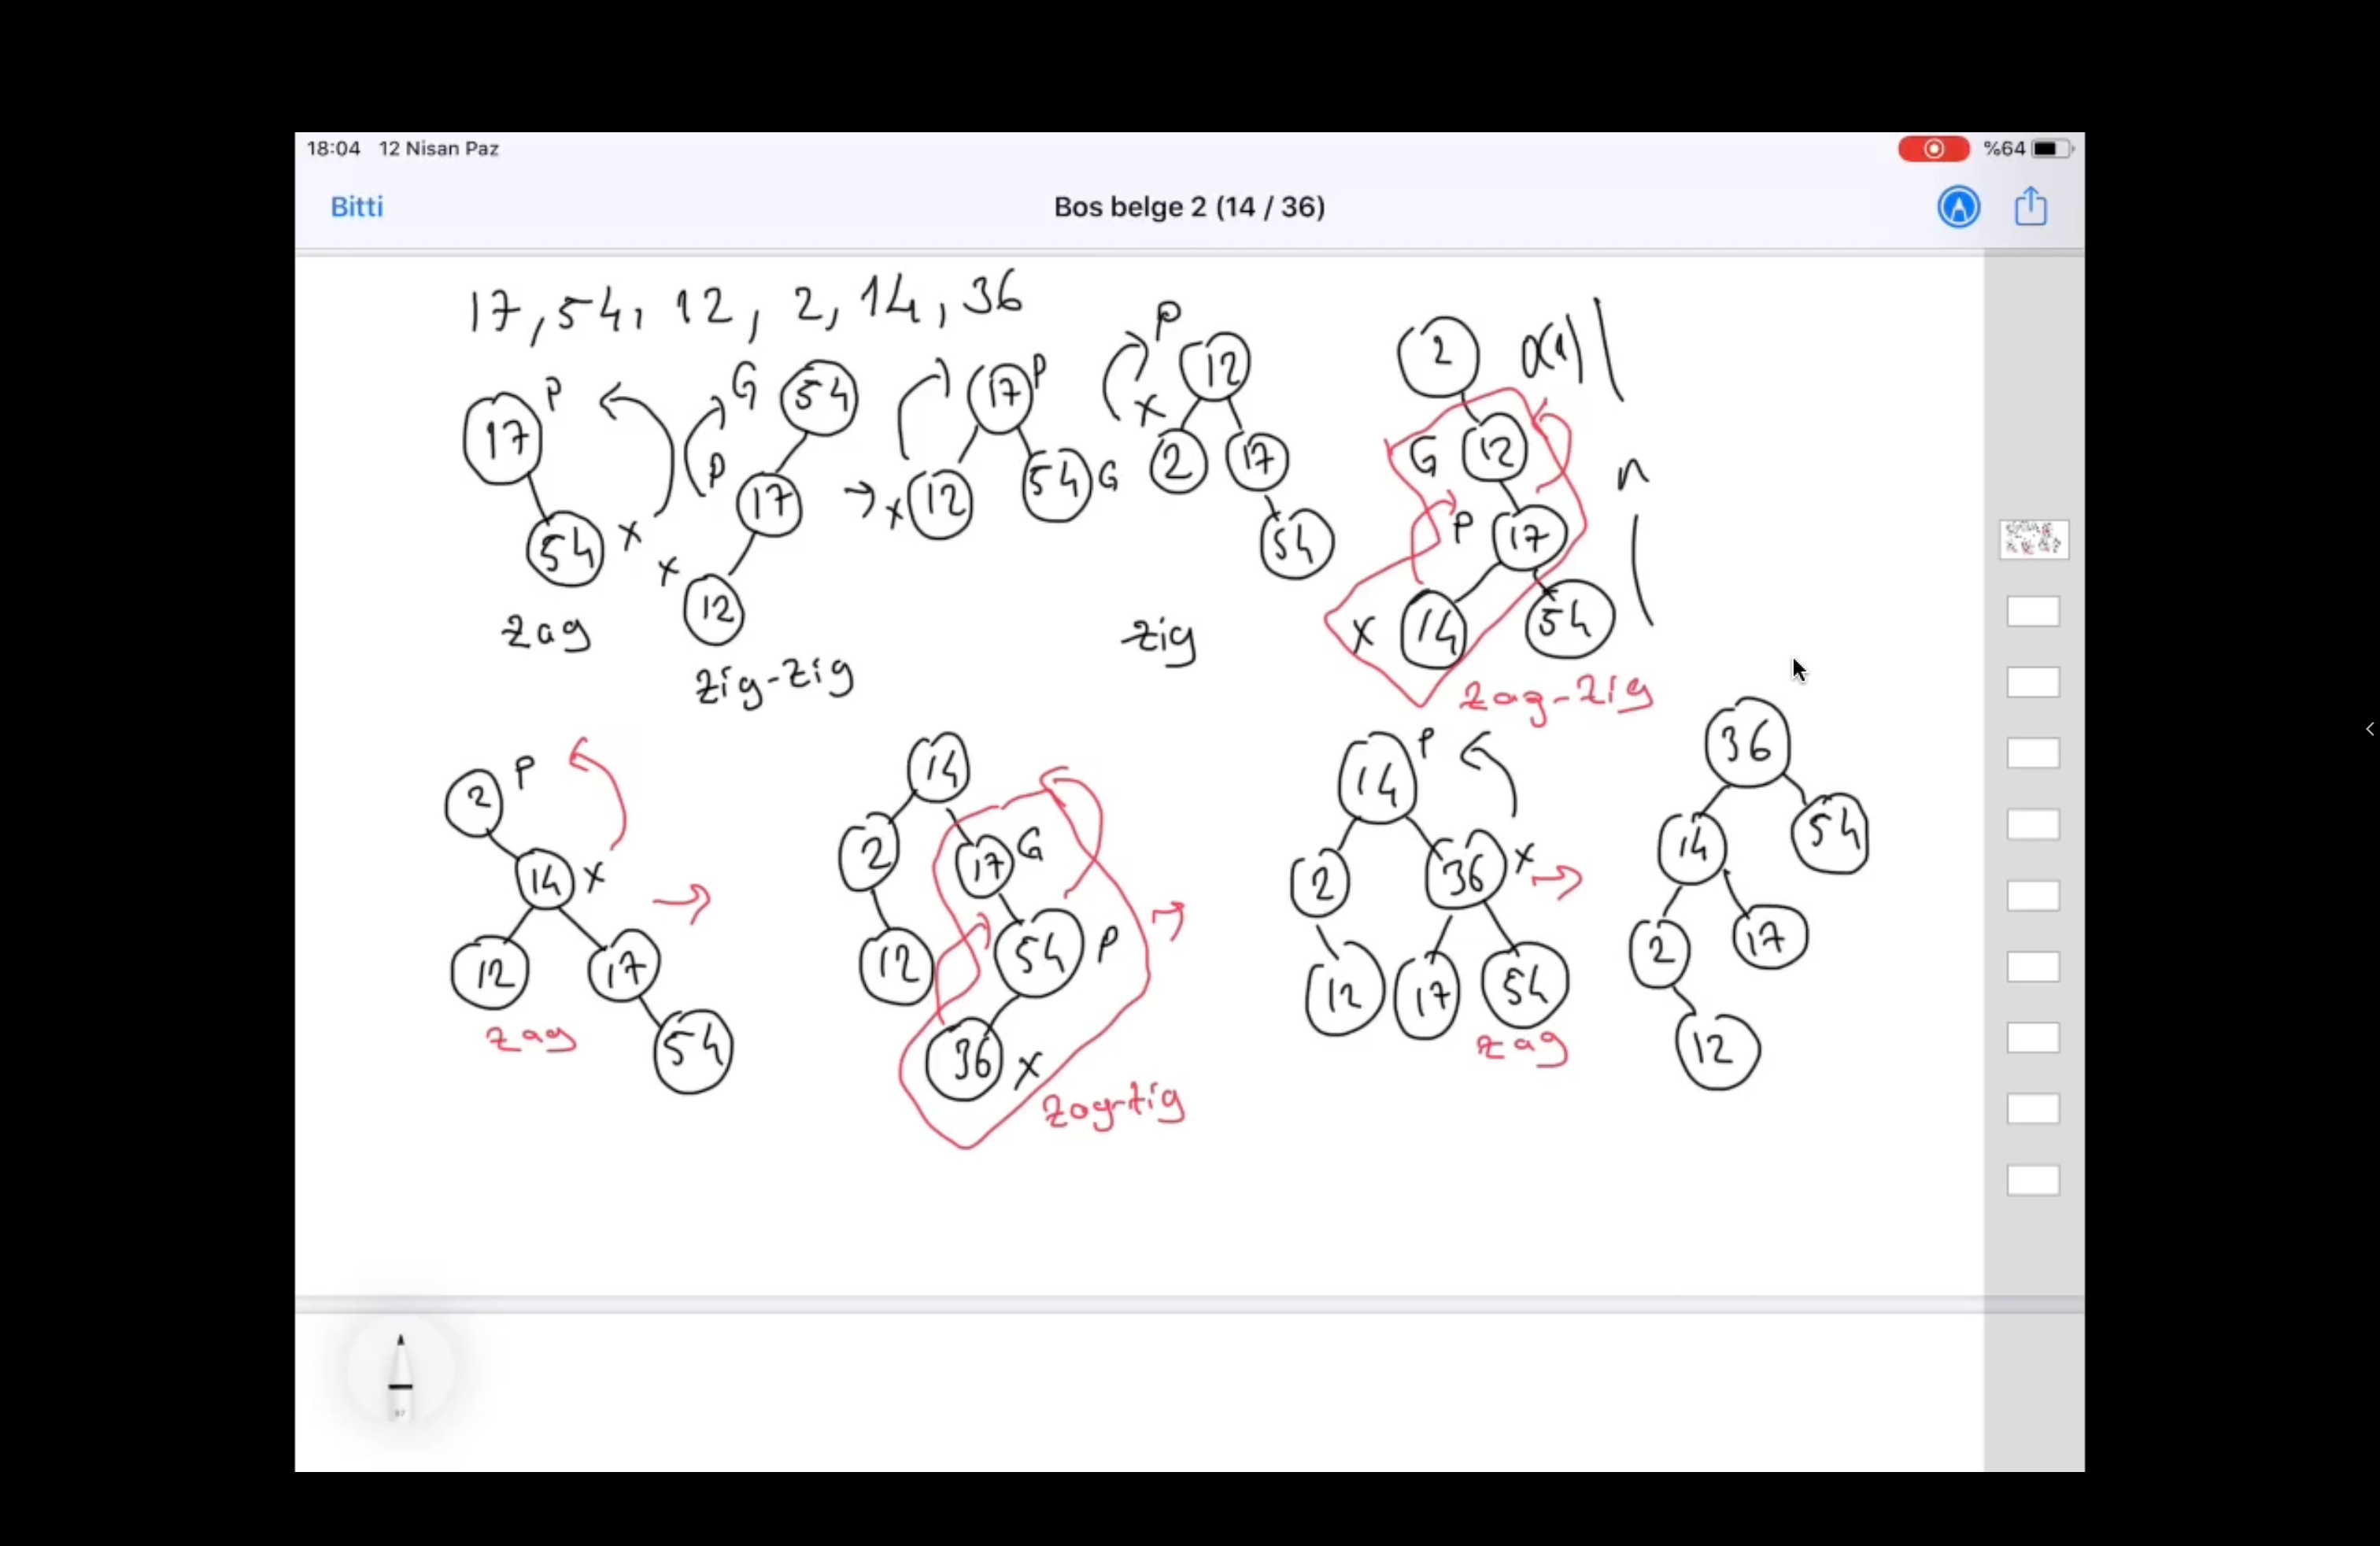 18:04 12 Nisan Paz
%64
Bitti
Bos belge 2 (14 / 36)
17, 54, 12, 2, 14, 36
17 P
54 x
zag
G 54
P 17
x 12
zig-zig
17 P
x 12
54 G
P 12
x 2
17
54
zig
2
G 12
P 17
x 14
54
n
zag-zig
2 P
14 x
12
17
54
zag
14
2
17 G
12
54 P
36 x
zag-zig
14 P
2
36 x
12
17
54
zag
36
14
54
2
17
12
97